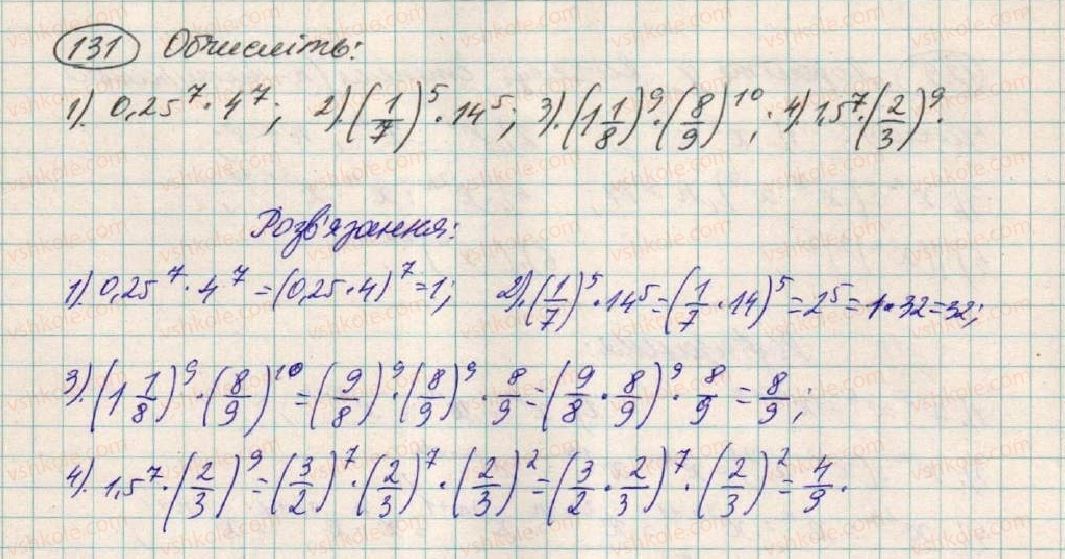 131 Обчисліть:
1). 0,25⁷·4⁷; 2).(1/7)⁵·14⁵; 3).(1 1/8)⁹·(8/9)¹⁰; 4). 1,5⁷·(2/3)⁹.
Розв'язання:
1) 0,25⁷·4⁷=(0,25·4)⁷=1; 2).(1/7)⁵·14⁵=(1/7·14)⁵=2⁵=1·32=32;
3).(1 1/8)⁹·(8/9)¹⁰=(9/8)⁹·(8/9)⁹·8/9=(9/8·8/9)⁹·8/9=8/9;
4). 1,5⁷·(2/3)⁹=(3/2)⁷·(2/3)⁷·(2/3)²=(3/2·2/3)⁷·(2/3)²=4/9.